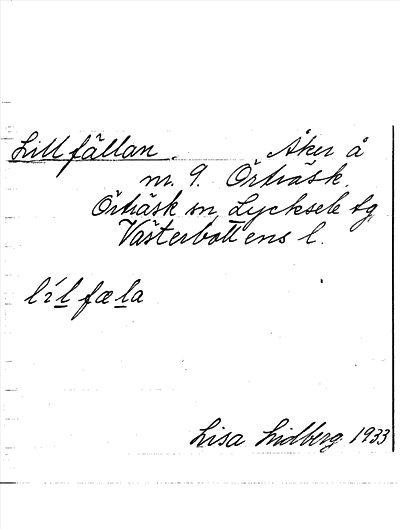 Lillfällan. Åker å
nr. 9. Örträsk.
Örträsk sn, Lycksele tg
Västerbottens l.
lílfæla
Lisa Lidberg 1933